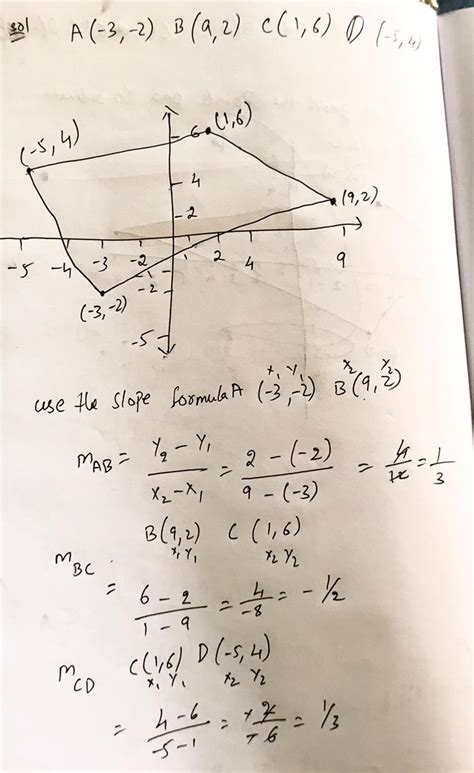 sol A(-3,-2) B(9,2) C(1,6) D(-5,4)
6 (1,6)
(-5,4)
4
(9,2)
2
-5 -4 -3 -2 -1 1 2 4 9
-2
(-3,-2)
-5
x₁ y₁ x₂ y₂
use the slope formula A (-3,-2) B(9,2)
m_AB = (Y₂-Y₁)/(X₂-X₁) = (2-(-2))/(9-(-3)) = 4/12 = 1/3
B(9,2) C(1,6)
x₁ y₁ x₂ y₂
m_BC
= (6-2)/(1-9) = 4/-8 = -1/2
m_CD C(1,6) D(-5,4)
x₁ y₁ x₂ y₂
= (4-6)/(-5-1) = +2/+6 = 1/3